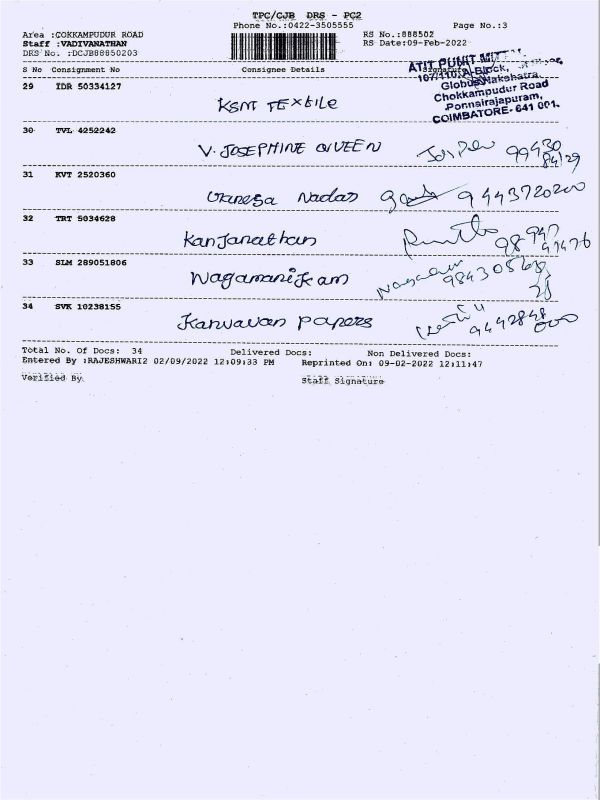 TPC/CJB DRS - PC2
Phone No.:0422-3505555 Page No.:3
Area :COKKAMPUDUR ROAD RS No.:888502
Staff :VADIVANATHAN RS Date:09-Feb-2022
DRS No. :DCJB88850203
S No Consignment No Consignee Details Signature
ATIT PUNIT MITTAL
107/110, A Block,
Globus Nakshatra,
Chokkampudur Road
Ponnairajapuram,
COIMBATORE - 641 001.
29 IDR 50334127
KSM TEXtiLE
30 TVL 4252242
V. JOSEPHINE QUEEN 99430
84129
31 KVT 2520360
Nadar 9443720200
32 TRT 5034628
Kanjanathan 98 947
47476
33 SLM 289051806
Nagamanikam
34 SVK 10238155
papers 9442848
000
Total No. Of Docs: 34 Delivered Docs: Non Delivered Docs:
Entered By :RAJESHWARI2 02/09/2022 12:09:33 PM Reprinted On: 09-02-2022 12:11:47
Verified By. Staff Signature